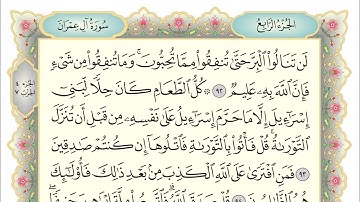 الجزء الرابع
سورة آل عمران
لَن تَنَالُوا۟ ٱلْبِرَّ حَتَّىٰ تُنفِقُوا۟ مِمَّا تُحِبُّونَ ۚ وَمَا تُنفِقُوا۟ مِن شَىْءٍ
فَإِنَّ ٱللَّهَ بِهِۦ عَلِيمٌ ٩٢ ۞ كُلُّ ٱلطَّعَامِ كَانَ حِلًّا لِّبَنِىٓ
إِسْرَٰٓءِيلَ إِلَّا مَا حَرَّمَ إِسْرَٰٓءِيلُ عَلَىٰ نَفْسِهِۦ مِن قَبْلِ أَن تُنَزَّلَ
ٱلتَّوْرَىٰةُ ۗ قُلْ فَأْتُوا۟ بِٱلتَّوْرَىٰةِ فَٱتْلُوهَآ إِن كُنتُمْ صَٰدِقِينَ
٩٣ فَمَنِ ٱفْتَرَىٰ عَلَى ٱللَّهِ ٱلْكَذِبَ مِنۢ بَعْدِ ذَٰلِكَ فَأُو۟لَٰٓئِكَ
هُمُ ٱلظَّٰلِمُونَ